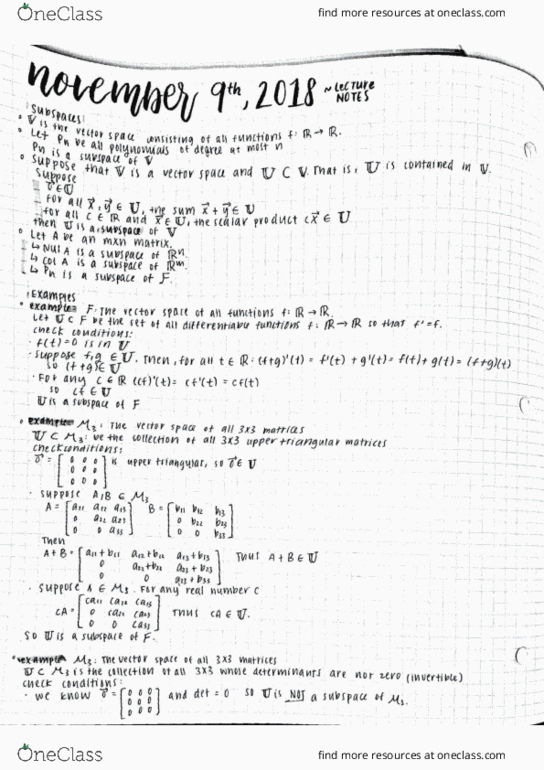 OneClass find more resources at oneclass.com
november 9th, 2018 ~ LECTURE NOTES
Subspaces
• V is the vector space consisting of all functions f: ℝ → ℝ.
• Let Pn be all polynomials of degree at most n
Pn is a subspace of V
• Suppose that V is a vector space and U ⊂ V. That is, U is contained in V.
Suppose
- 0⃗ ∈ U
- For all x⃗, y⃗ ∈ U, the sum x⃗ + y⃗ ∈ U
- for all c ∈ ℝ and x⃗ ∈ U, the scalar product cx⃗ ∈ U
then U is a subspace of V
• Let A be an mxn matrix.
↳ Nul A is a subspace of ℝⁿ.
↳ Col A is a subspace of ℝᵐ.
↳ Pn is a subspace of F.
Examples
• example F: The vector space of all functions f: ℝ → ℝ.
Let U ⊂ F be the set of all differentiable functions f: ℝ → ℝ so that f' = f.
check conditions:
· f(t) = 0 is in U
· suppose f,g ∈ U. Then, for all t ∈ ℝ: (f+g)'(t) = f'(t) + g'(t) = f(t) + g(t) = (f+g)(t)
so (f+g) ∈ U
· For any c ∈ ℝ (cf)'(t) = cf'(t) = cf(t)
so cf ∈ U
U is a subspace of F
• example M3: The vector space of all 3x3 matrices
U ⊂ M3: be the collection of all 3x3 upper triangular matrices
check conditions:
0⃗ = [0 0 0
0 0 0
0 0 0] is upper triangular, so 0⃗ ∈ U
· suppose A,B ∈ M3
A = [a11 a12 a13 B = [b11 b12 b13
0 a22 a23 0 b22 b23
0 0 a33] 0 0 b33]
Then
A + B = [a11 + b11 a12 + b12 a13 + b13
0 a22 + b22 a23 + b23
0 0 a33 + b33] Thus A + B ∈ U
· Suppose A ∈ M3. For any real number c
cA = [ca11 ca12 ca13
0 ca22 ca23
0 0 ca33] Thus cA ∈ U.
So U is a subspace of F.
• example M3: The vector space of all 3x3 matrices
U ⊂ M3 is the collection of all 3x3 whose determinants are not zero (invertible)
check conditions:
· we know 0⃗ = [0 0 0
0 0 0
0 0 0] and det = 0 so U is NOT a subspace of M3.
OneClass find more resources at oneclass.com